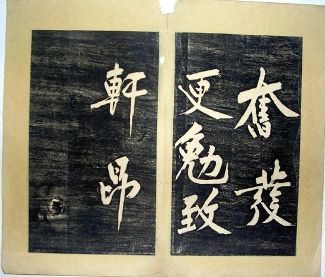 奮發
更勉致
軒昂